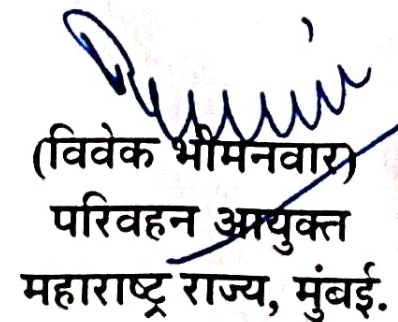 (विवेक भीमनवार)
परिवहन आयुक्त
महाराष्ट्र राज्य, मुंबई.